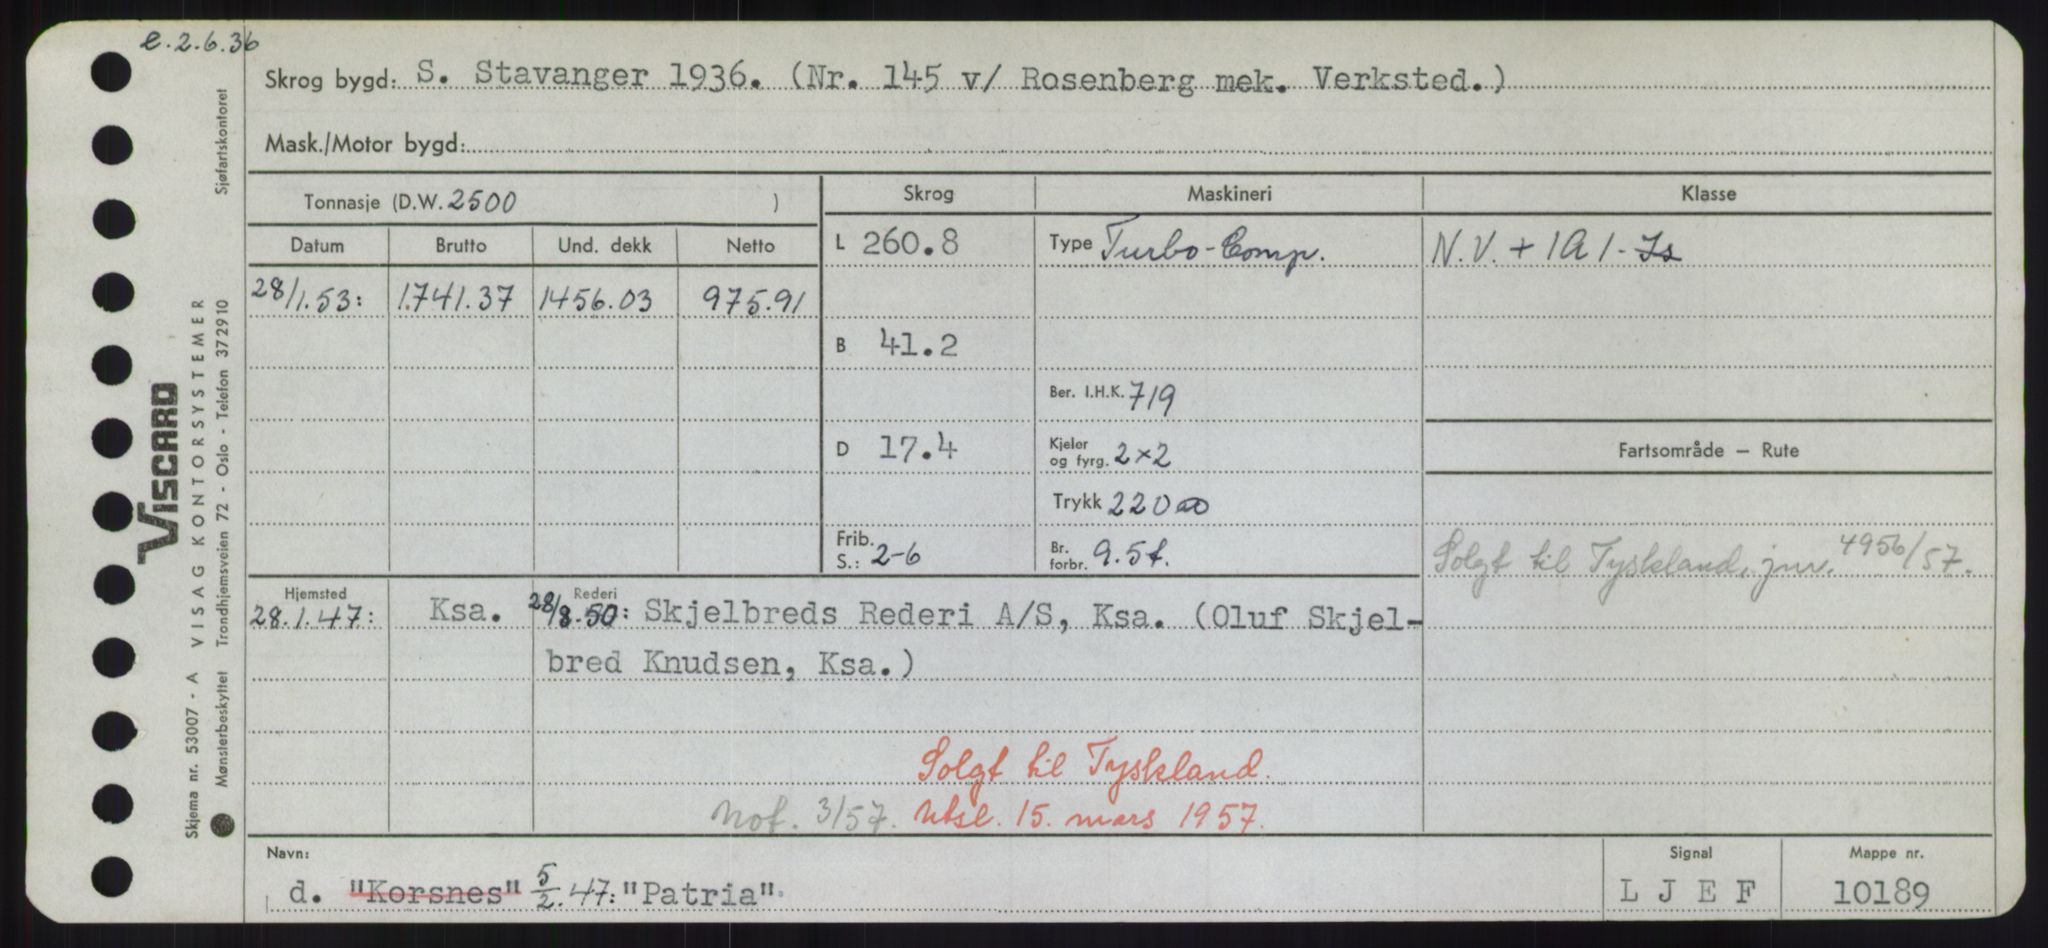 e.2.6.36
Skrog bygd: S. Stavanger 1936. (Nr. 145 v/ Rosenberg mek. Verksted.)
Mask./Motor bygd:
Tonnasje (D.W. 2500 )
Skrog
Maskineri
Klasse
Datum
Brutto
Und. dekk
Netto
L 260.8
Type Turbo-Comp.
N.V. + 1A1-Is
28/1.53:
1.741.37
1456.03
975.91
B 41.2
Ber. I.H.K. 719
D 17.4
Kjeler
og fyrg. 2×2
Fartsområde – Rute
Trykk 220
Frib.
S.: 2-6
Br.
forbr. 9.5t.
Solgt til Tyskland, jnr. 4956/57.
Hjemsted
Rederi
28.1.47: Ksa. 28/8.50: Skjelbreds Rederi A/S, Ksa. (Oluf Skjel-
bred Knudsen, Ksa.)
Solgt til Tyskland.
Nof. 3/57. Utsl. 15. mars 1957.
Navn:
d. "Korsnes" 5/2.47: "Patria"
Signal
L J E F
Mappe nr.
10189
Viscard
Skjema nr. 53007 - A VISAG KONTORSYSTEMER
Mønsterbeskyttet Trondhjemsveien 72 - Oslo - Telefon 372910
Sjøfartskontoret